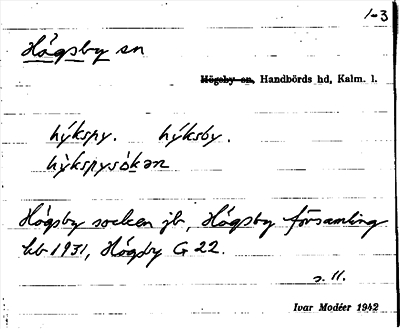 1-3
Högsby sn
Högsby sn, Handbörds hd, Kalm. l.
hýkspy. hýksby.
hỳkspysókən
Högsby socken jb, Högsby församling
kb 1931, Högsby G 22.
s. 11.
Ivar Modéer 1942